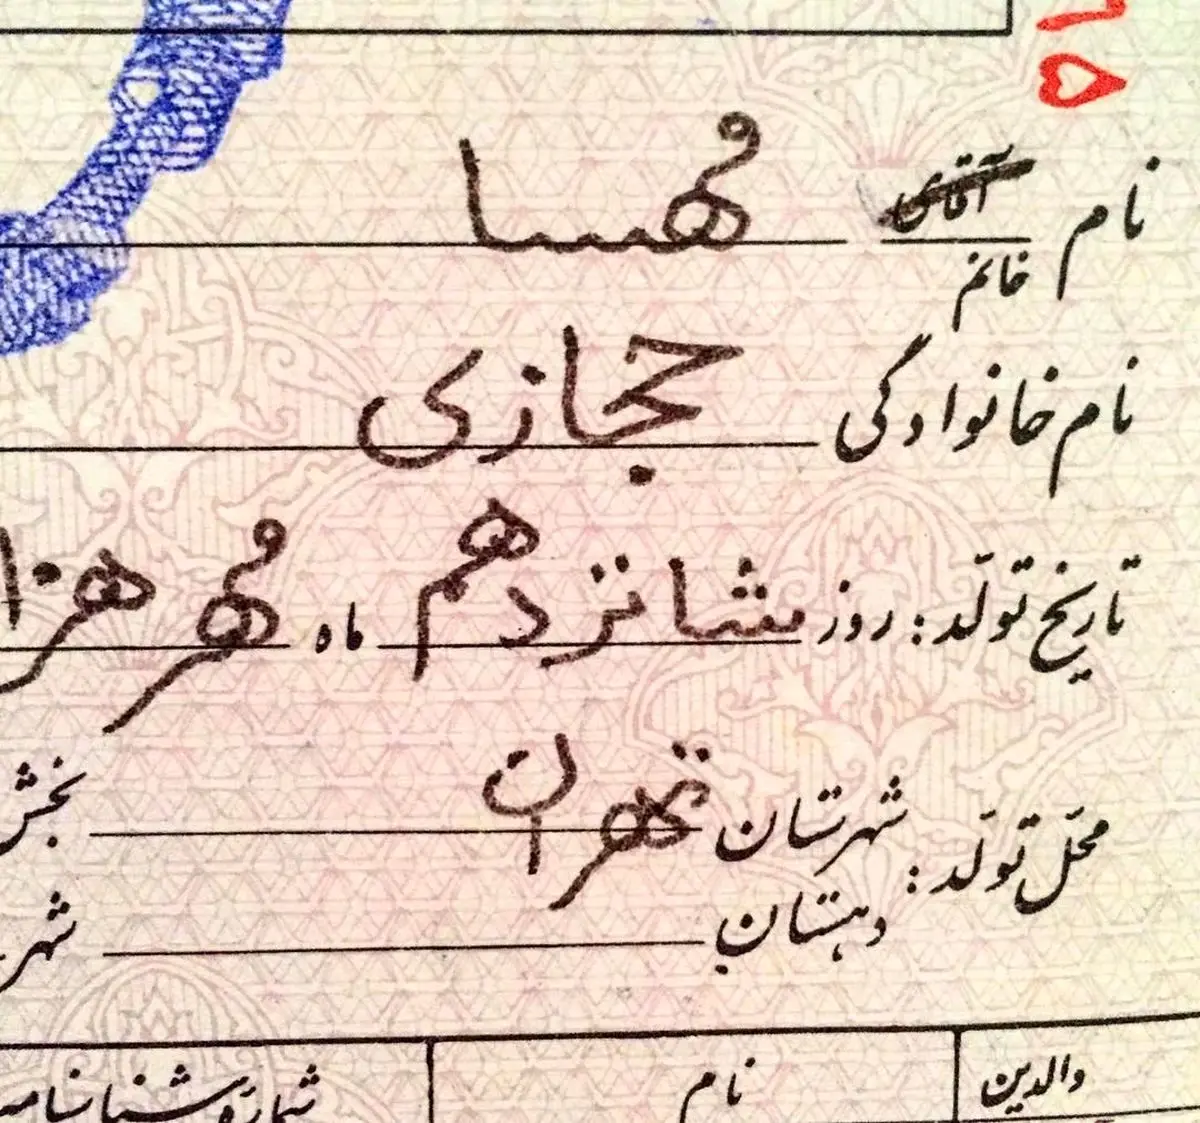 نام آقای مهسا
خانم
نام خانوادگی حجازی
تاریخ تولد: روز شانزدهم ماه مهر
محل تولد: شهرستان تهران بخش
دهستان شهر
والدین نام شماره شناسنامه